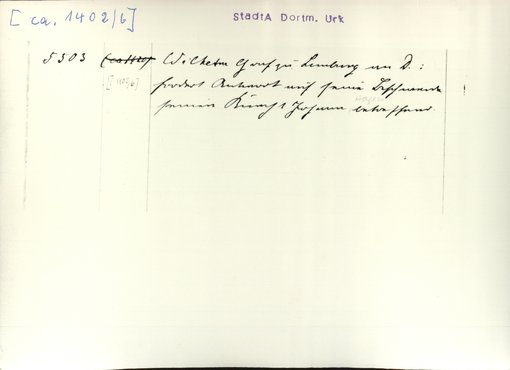 [ca. 1402/6]
StadtA Dortm. Urk
5303 Wilhelm Graf zu Limburg an D.:
[1402/6] fordert Antwort auf seine Beschwerde
seinen Knecht Johann betreffend